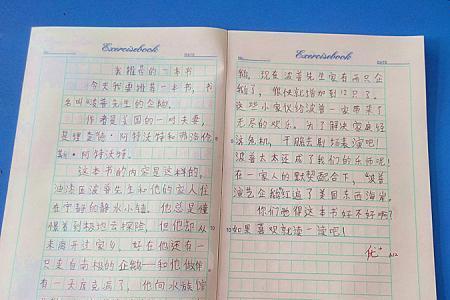 Exercisebook
我推荐的一本书
今天我要推荐一本书，书
名叫《波普先生的企鹅》。
作者是美国的一对夫妻，
是理查德·阿特沃特和弗洛伦
斯·阿特沃特。
这本书的内容是这样的，
油漆匠波普先生和他的家人住
在宁静的静水小镇。他总是憧
憬着到极地去探险，但他却从
未离开过家乡。好在他还有一
只来自南极的企鹅——和他做伴
有一天库克病了，他向水族馆
Exercisebook
现在波普先生家有两只企
鹅了，很快就增加到12只了。
这些小家伙给波普一家带来了
无尽的欢乐。为了解决家庭经
济危机，干脆去剧场表演吧！
波普太太还成了我们的乐师呢！
在一家人的默契配合下，“波普
演艺企鹅”红遍了美国东西海岸。
你们觉得这本书好不好啊？
如果喜欢就读一读吧！
优+